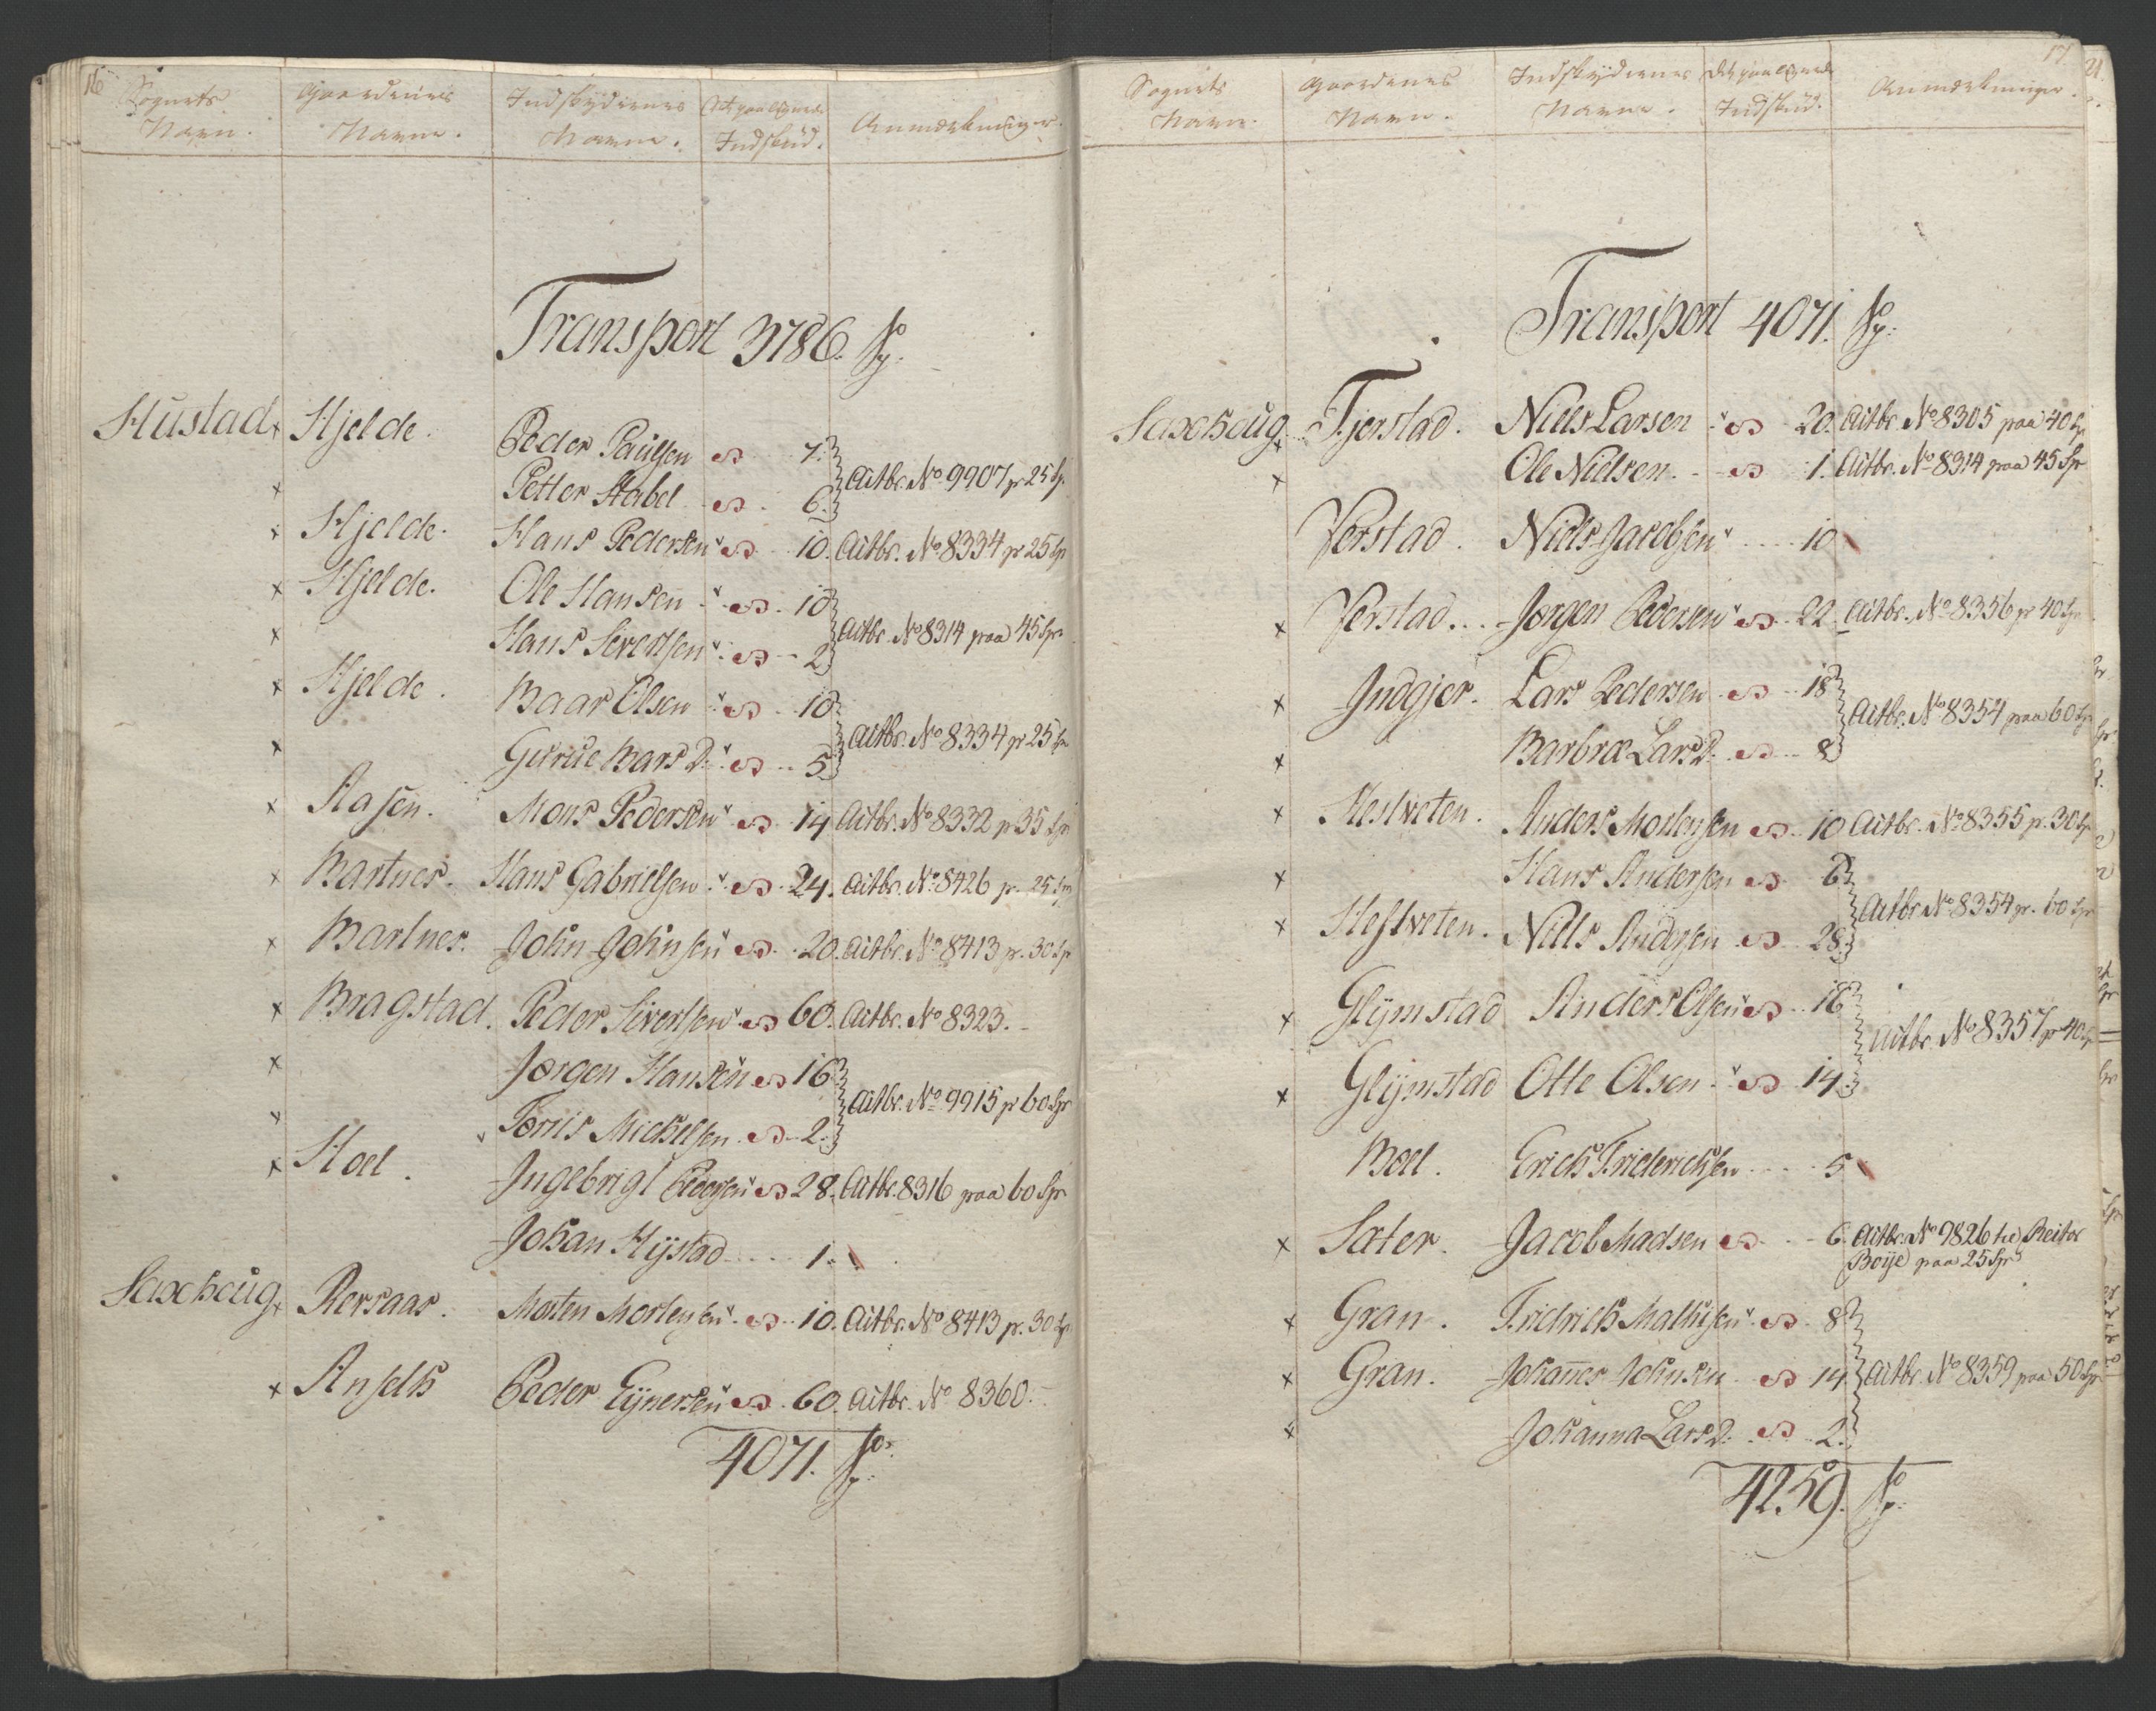 16
Sognets Navn. Gaardenes Navne. Indskydernes Navne. Det paalignede Indskud. Anmærkninger.
Transport 3786. Sp:
Hustad x Hjelde. Peder Paulsen 7.
Actbr. No 9907 pr 25 Sp
x Petter Stabel 6.
x Hjelde. Hans Pedersen 10. Actbr. No 8334 pr 25 Sp
x Hjelde. Ole Hansen 10
Actbr. No 8314 paa 45 Spr
x Hans Sivertsen 2
x Hjelde. Baar Olsen 10
Actbr. No 8334 pr 25 Sp
x Gurue Bars D: 5
x Aasen. Mons Pedersen 14 Actbr. No 8332 p 35 Sp
x Bartnes. Hans Gabrielsen 24. Actbr. No 8426 p. 25 Sp
x Bartnes. John Johnsen 20. Actbr. No 8413 p. 30 Sp
x Bragstad. Peder Sivertsen 60. Actbr. No 8323.
x Jørgen Hansen 16
Actbr. No 9915 pr 60 Spr
x Tøriis Michelsen 2.
x Hoel. Ingebrigt Pedersen 28. Actbr. 8316 paa 60 Spr
Johan Hÿstad 1.
Saxhaug x Rørsaas. Morten Mortensen 10. Actbr. No 8413 p. 30 Sp
x Anselh Peder Eÿnersen 60. Actbr. No 8360.
4071. Sp:
17
Sognets Navn. Gaardenes Navn. Indskydernes Navne. Det paalignede Indskud. Anmærkninger.
Transport 4071. Sp:
Saxhaug x Tjerstad. Niels Larsen 20. Actbr. No 8305 paa 40 Sp
x Ole Nielsen. 1. Actbr. No 8314 paa 45 Spr
Verstad. Niels Jacobsen 10
x Verstad. Jørgen Pedersen 22. Actbr. No 8356 pr 40 Sp
x Indgjer. Lars Pedersen 18
Actbr. No 8354 paa 60 Sp
x Barbræ Lars D. 8
x Hestveten. Anders Mortensen 10 Actbr. No 8355 p. 30 Sp
x Hans Andersen 6
Actbr. No 8354 pr. 60 Spr
x Hestveten. Niels Andersen 28.
x Glÿmstad Anders Olsen 16
Actbr. No 8357 pr 40 Sp
x Glÿmstad Otte Olsen 14
Boel. Erich Friderichsen 5
x Sæter. Jacob Madsen 6. Actbr. No 9826 til Reitor
Boÿe paa 25 Spr
x Gran. Fridrich Mathisen 8
x Gran. Johannes Johnsen 14 Actbr. No 8359 paa 50 Sp
x Johanna Lars D. 2.
4259. Sp: